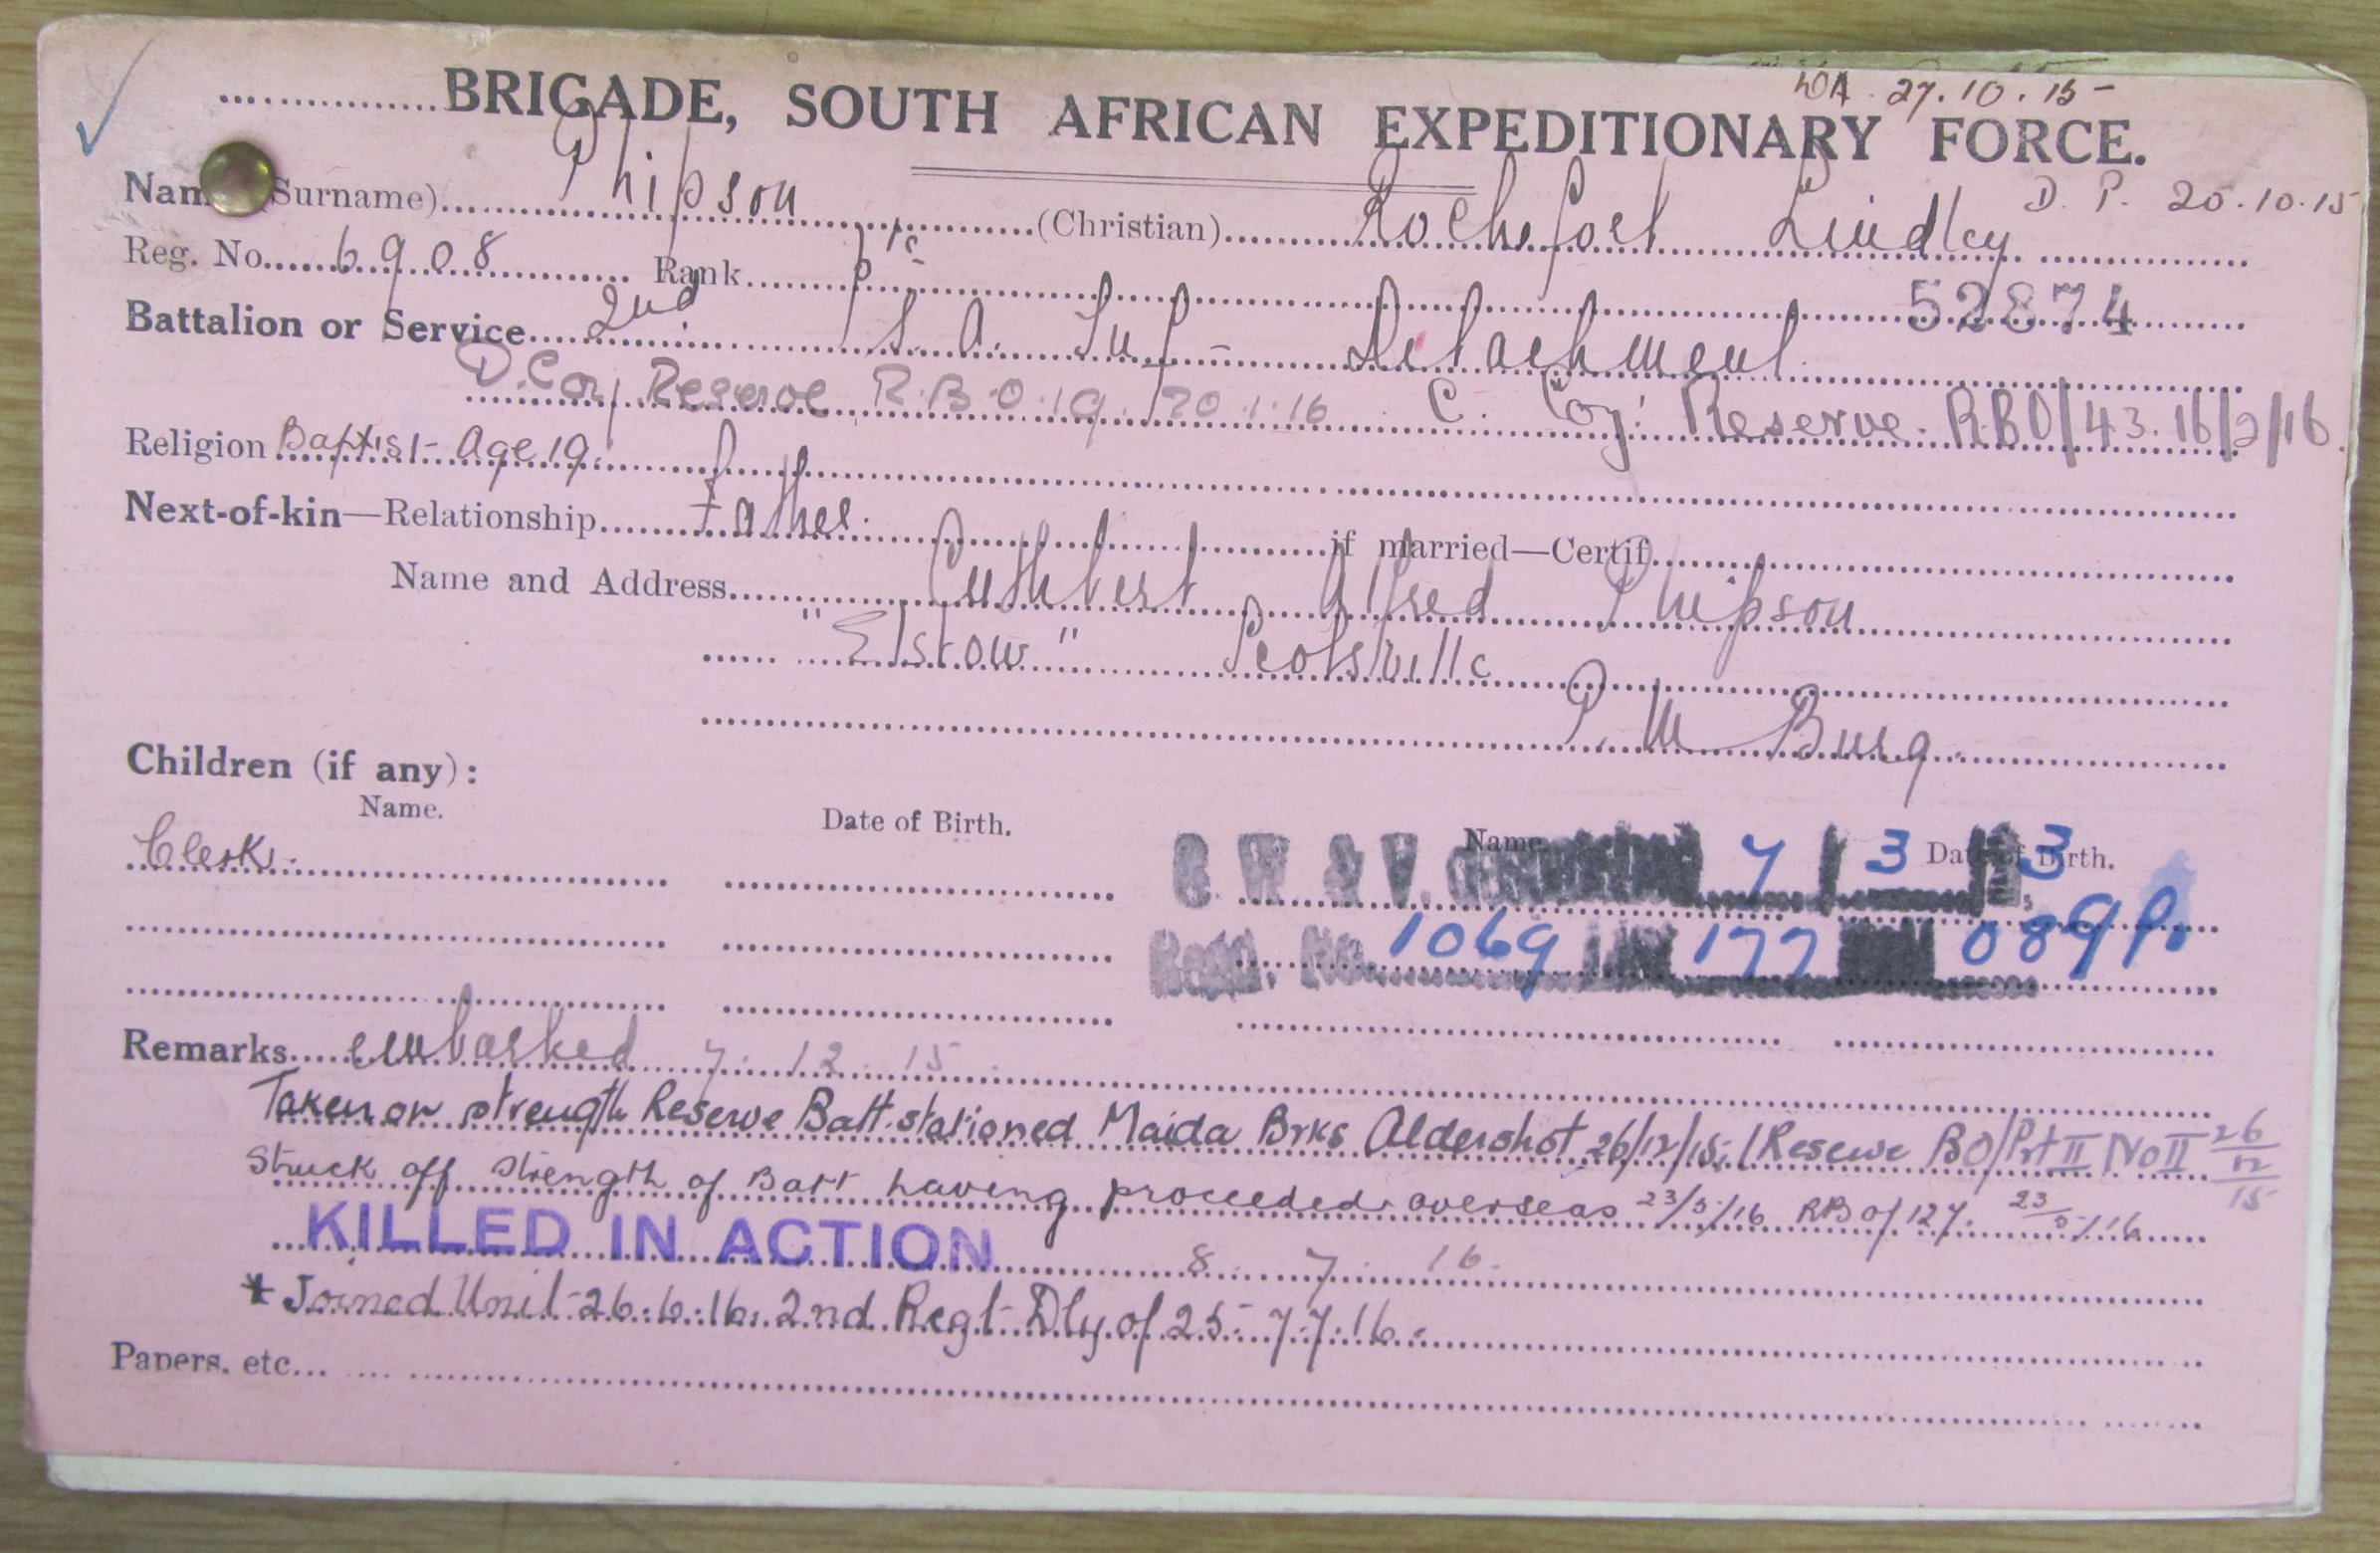 DA 27.10.15
BRIGADE, SOUTH AFRICAN EXPEDITIONARY FORCE.
D. P. 20.10.15
Nam (Surname) Phipson (Christian) Rochefort Lindley
Reg. No. 6908 Rank Pte
52874
Battalion or Service 2nd S. A. Inf - Detachment.
D. Coy Reserve R.B.O. 19. 20.1.16 C. Coy: Reserve. RBO/43. 16/2/16.
Religion Baptist - Age 19.
Next-of-kin—Relationship Father. if married—Certif.
Name and Address Cuthbert Alfred Phipson
"Elstow" Scotsville
P. M. Burg.
Children (if any):
Name. Date of Birth. Name Date of Birth.
Clerk. B. W & V. 7 3 3
Regn. No. 1069 177 089
Remarks embarked 7. 12. 15
Taken on strength Reserve Batt. stationed Maida Brks Aldershot 26/12/15. (Reserve BO/Prt II No II 26/12/15
Struck off strength of Batt having proceeded overseas 23/5/16 RB of 127. 23/5/16
KILLED IN ACTION 8. 7. 16.
* Joined Unit - 26.6.16. 2nd Regt Dly of 25 - 7.7.16.
Papers, etc.